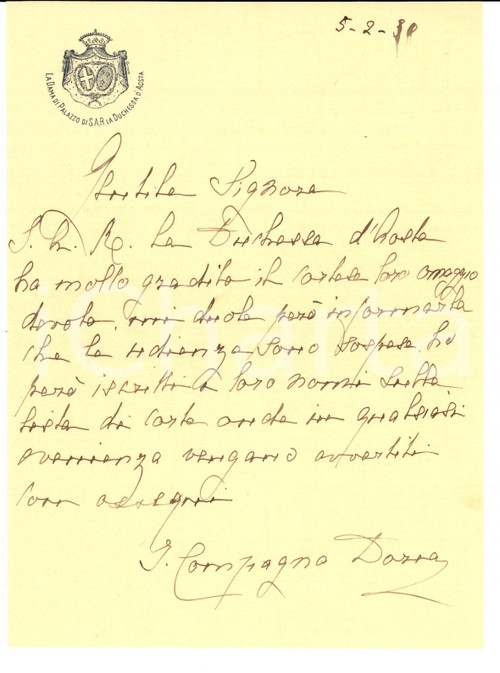 5-2-30
LA DAMA DI PALAZZO DI S.A.R. LA DUCHESSA D'AOSTA
Gentile Signora
S. A. R. La Duchessa d'Aosta
ha molto gradito il cortese loro omaggio
devoto, mi duole però informarla
che le udienze sono sospese, ho
però iscritti i loro nomi sulla
lista di corte onde in qualsiasi
evenienza vengano avvertiti
con ossequi
Compagna Doria